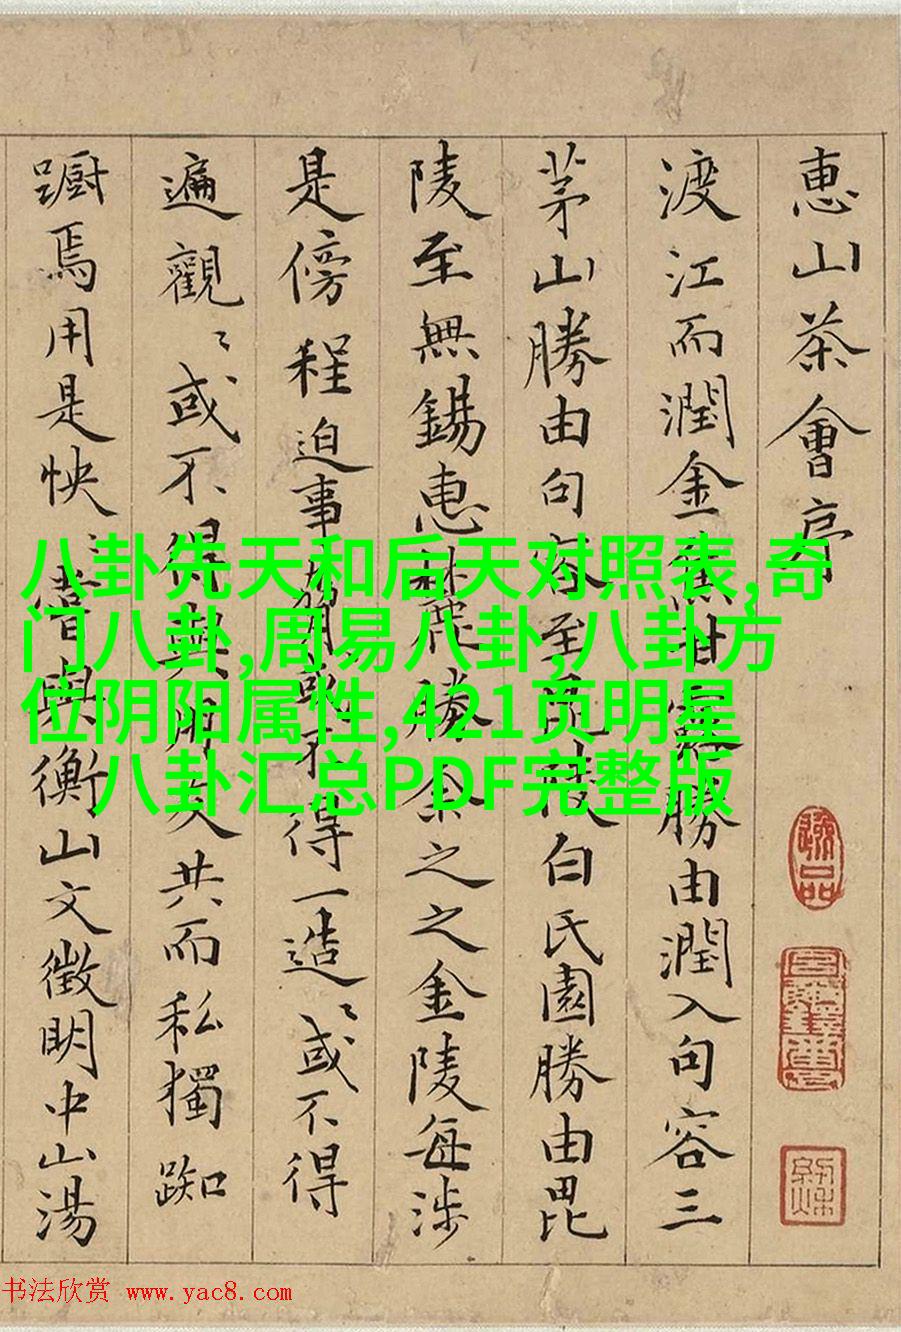 惠山茶會序
渡江而潤金焦甘露勝由潤入句容三
茅山勝由句容至毘陵白氏園勝由毘
陵至無錫惠麓勝余之之金陵每涉
是傍程迫事或不得一造〻或不得
遍觀〻或不得與所友共而私獨踟
蹰焉用是怏〻嘗與衡山文徵明中山湯
八卦先天和后天对照表,奇
门八卦,周易八卦,八卦方
位阴阳属性,421页明星
八卦汇总PDF完整版
书法欣赏 www.yac8.com